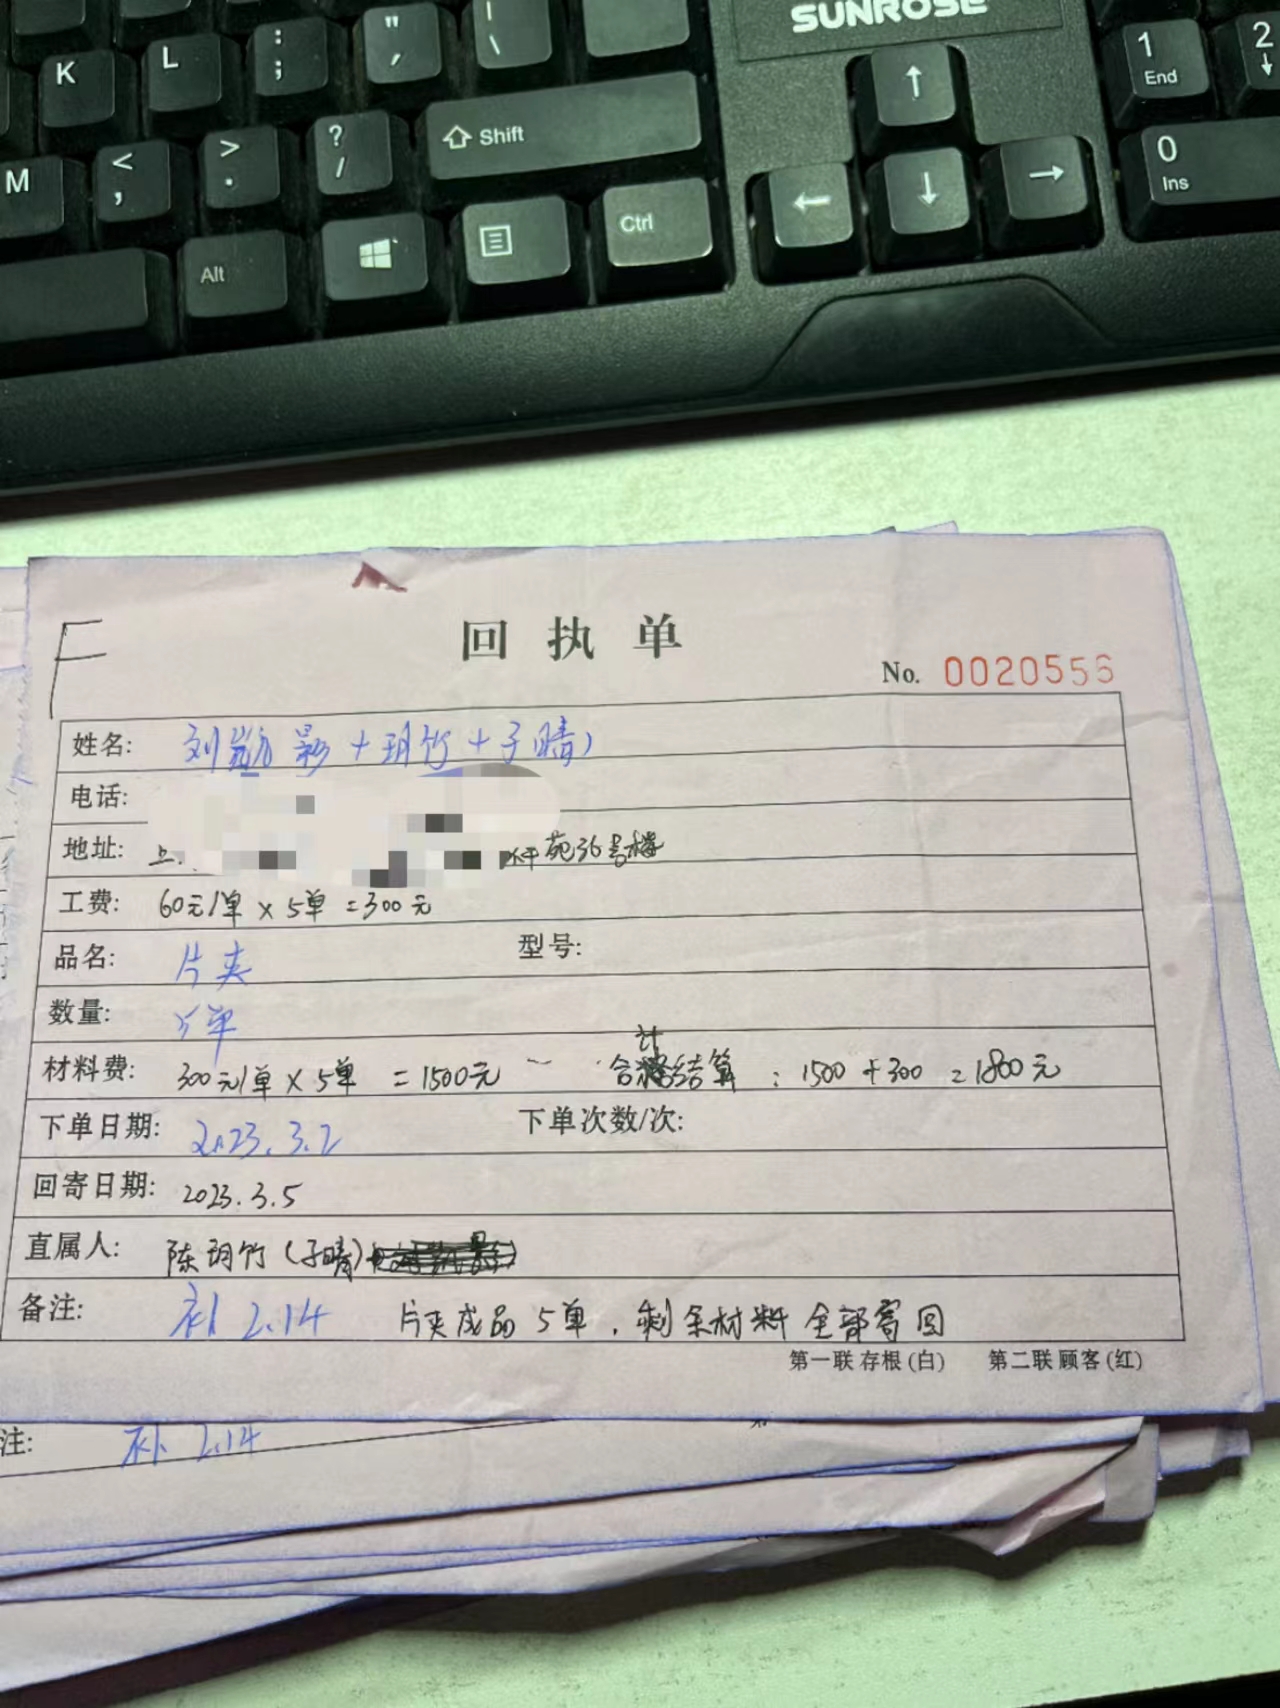 SUNROSE
K
L
:
;
"
'
|
\
1
End
2
↓
M
<
,
>
.
?
/
Shift
↑
0
Ins
Alt
Ctrl
←
↓
→
F
回执单
No. 0020556
姓名: 刘 影+玥竹+子晴)
电话:
地址: 上 苑36号楼
工费: 60元/单×5单=300元
品名: 片夹 型号:
数量: 5单
材料费: 300元/单×5单=1500元 合计结算:1500+300=1800元
下单日期: 2023.3.2 下单次数/次:
回寄日期: 2023.3.5
直属人: 陈玥竹(子晴)
备注: 补2.14 片夹成品5单,剩余材料全部寄回
第一联存根(白) 第二联顾客(红)
注: 补2.14